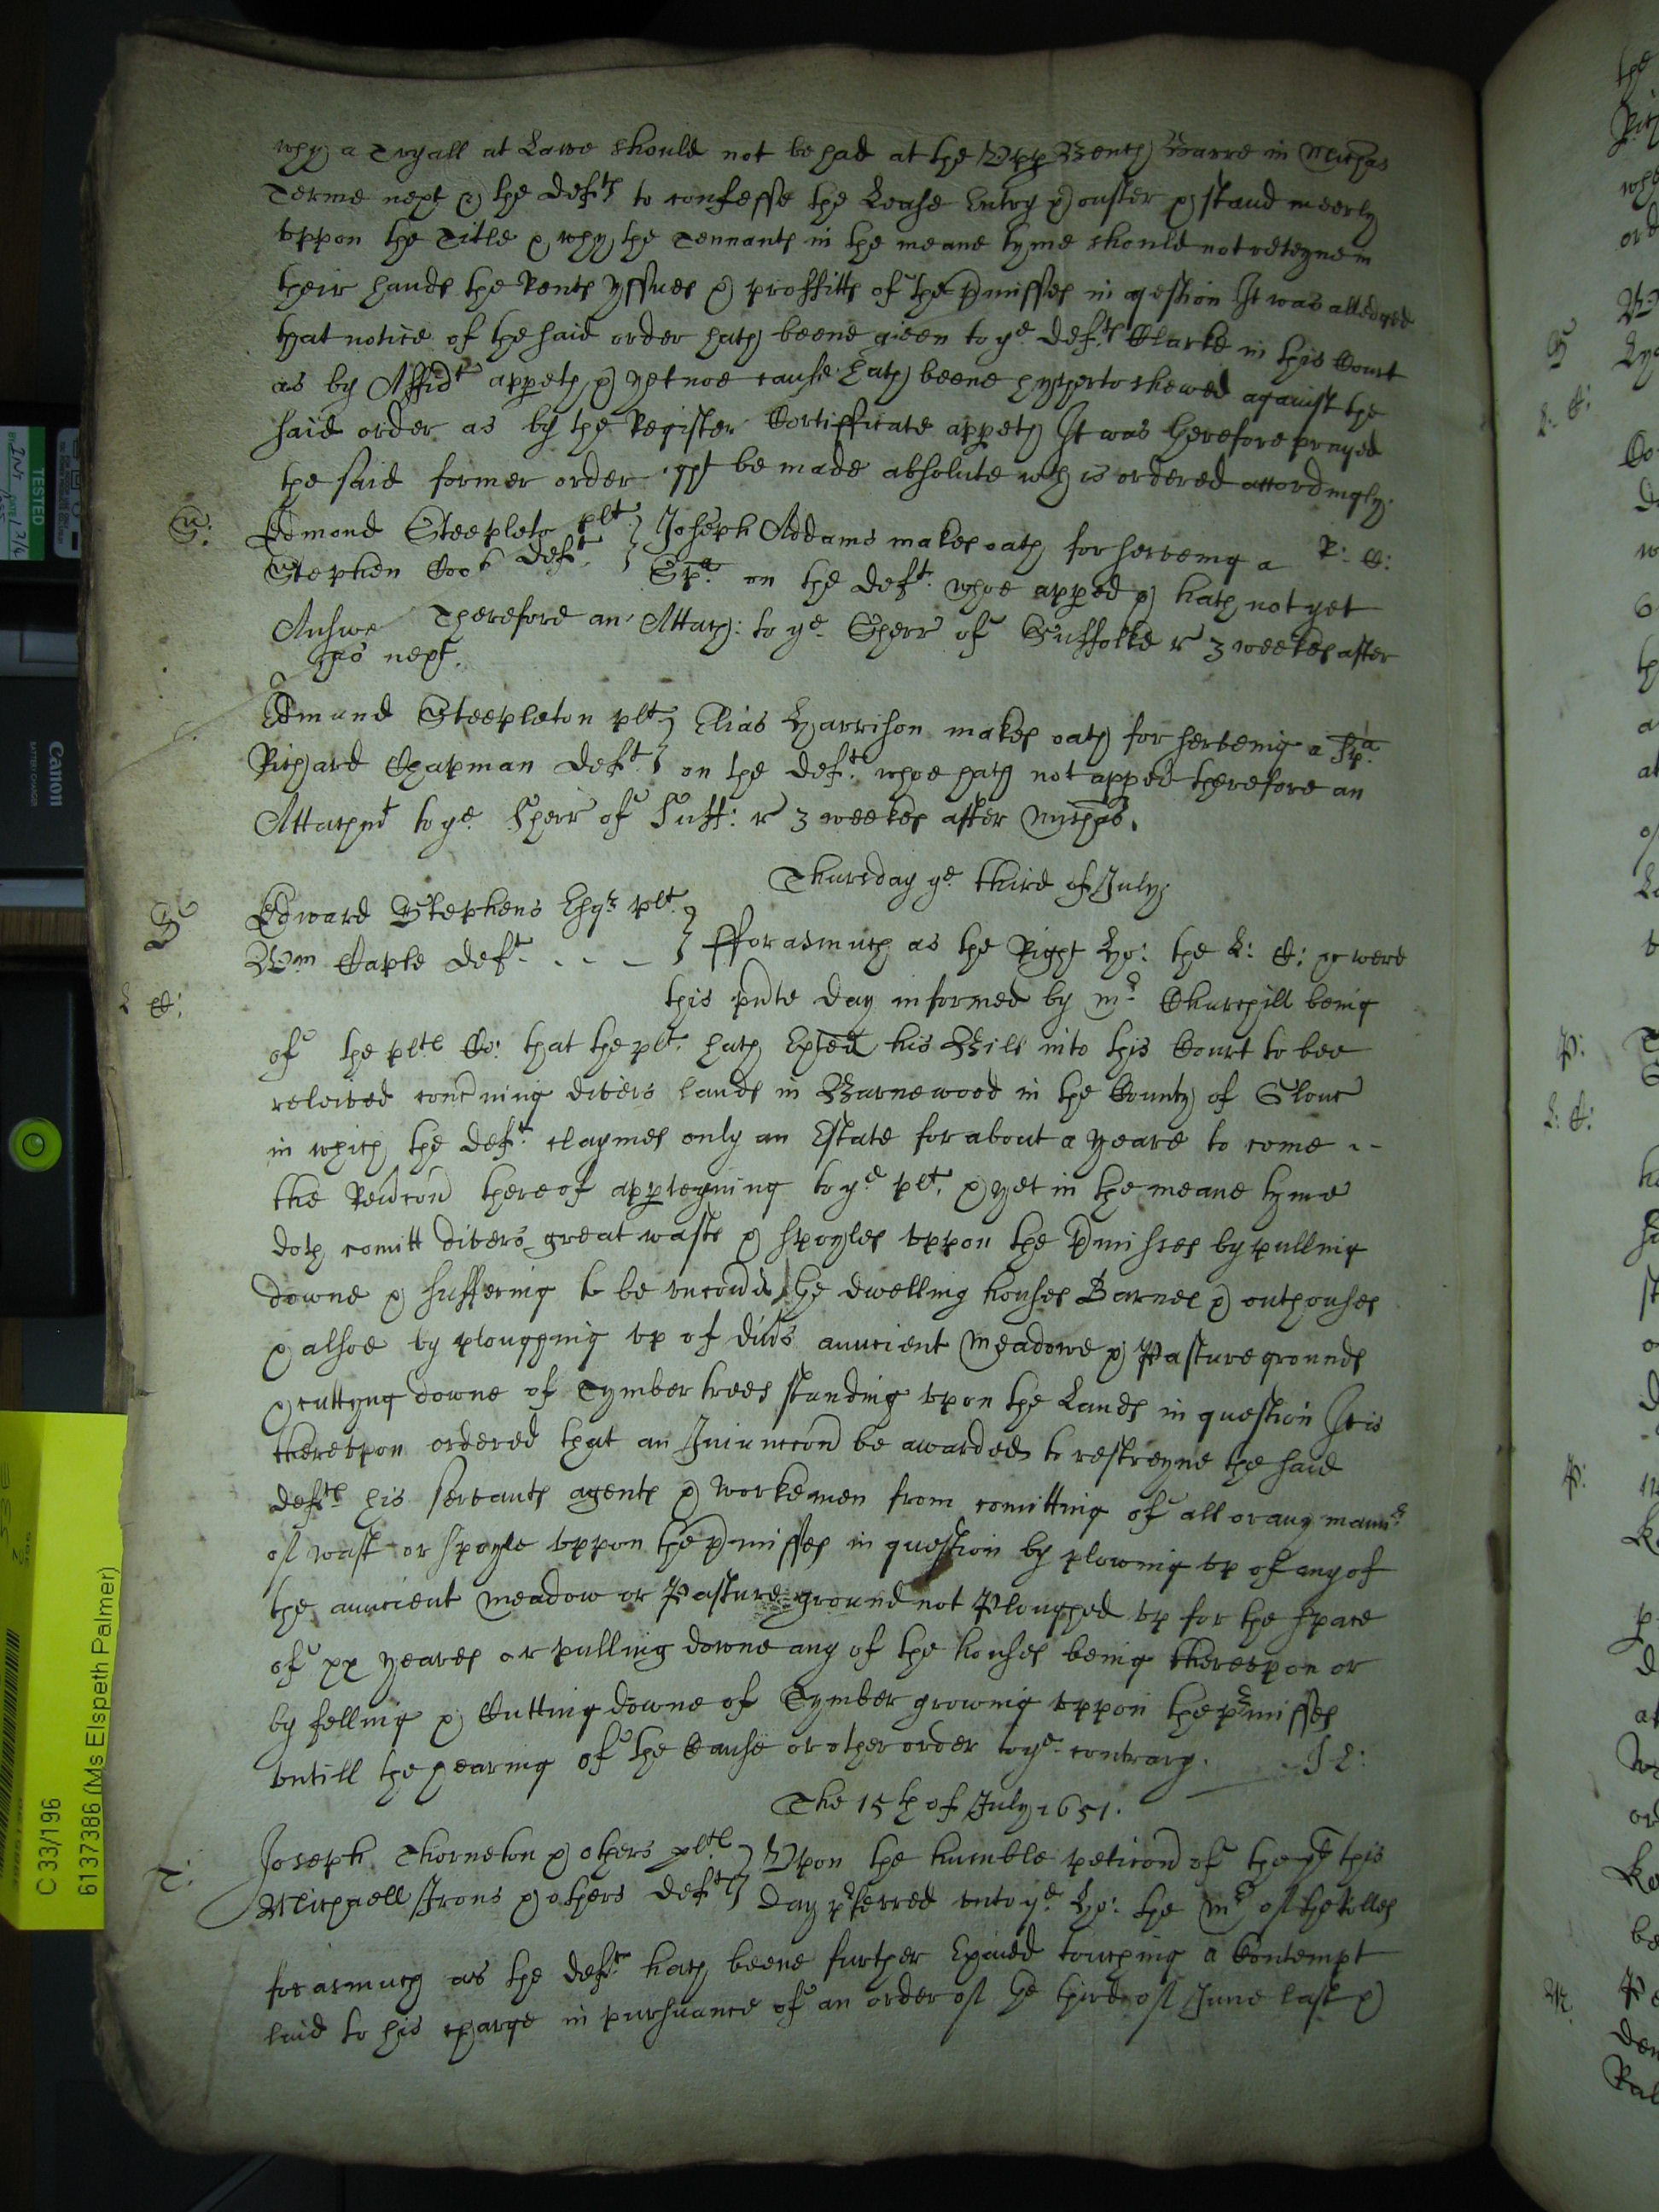 why a Tryall at Lawe should not be had at the Upp Bench Barre in Michas
Terme next & the Defts to confesse the Lease Entry & ouster & stand meerly
uppon the Title & why the Tennants in the meane tyme should not reteyne in
their hands the Rents yssues & proffitts of the pmisses in question It was alledged
that notice of the said order hath beene given to ye Defts Clarke in this Court
as by Affidt appeth & yet noe cause hath beene hytherto shewed against the
said order as by the Register Certifficate appeth It was therefore prayed
the said former order might be made absolute wch is ordered accordingly.
S: Edmond Steepleto plt } Joseph Addams makes oath for serveing a R: C:
Stephen Cook Deft } Spa on the Deft whoe apped & hath not yet
Answe Therefore an Attach: to ye Sherr of Suffolke r 3 weekes after
has next.
Edmund Steepleton plt } Elias Harrison makes oath for serveing a Spa
Richard Chapman Deft } on the Deft whoe hath not apped therefore an
Attachmt to ye Sherr of Suff: r 3 weekes after Michas.
Thursday ye third of July
S Edward Stephens Esqr plt }
Wm Caple Deft - . - . - } fforasmuch as the Right Ho: the L: C: were
L C: this pnte day informed by Mr Churchill being
of the plts Co: that the plt hath Exhed his Bill into this Court to bee
releived concning divers lands in Barnewood in the County of Glouc
in which the Deft claymes only an Estate for about a yeare to come --
the Revcon thereof apperteyning to ye plt & yet in the meane tyme
doth comitt divers great wasts & spoyles uppon the pmisses by pulling
downe & suffering to be uncovd the dwelling houses Barnes & outhouses
& alsoe by ploughing up of divs auncient Meadowe & Pasture grounds
& cuttyng downe of Tymber trees standing upon the Lands in question It is
thereupon ordered that an Iniunccon be awarded to restreyne the said
Defts his servants agents & workemen from comitting of all or any mannr
of wast or spoyle uppon the pmisses in question by plowing up of any of
the auncient meadow or Pasture ground not Ploughed up for the space
of xx yeares or pulling downe any of the houses being thereupon or
by felling & Cutting downe of Tymber growing uppon the pmisses
untill the hearing of the Cause or other order to ye contrary. J L:
The 15th of July 1651.
T: Joseph Thorneton & others plts } Upon the humble peticon of the plt this
Michaell Irons & others Defts } day pferred unto ye Ho: the Mr of the Rolles
forasmuch as the Deft hath beene further Exaied touching a Contempt
laid to his charge in pursuance of an order of the third of June last &
TESTED
Canon
BATTERY CHARGER
C 33/196
6137386 (Ms Elspeth Palmer)